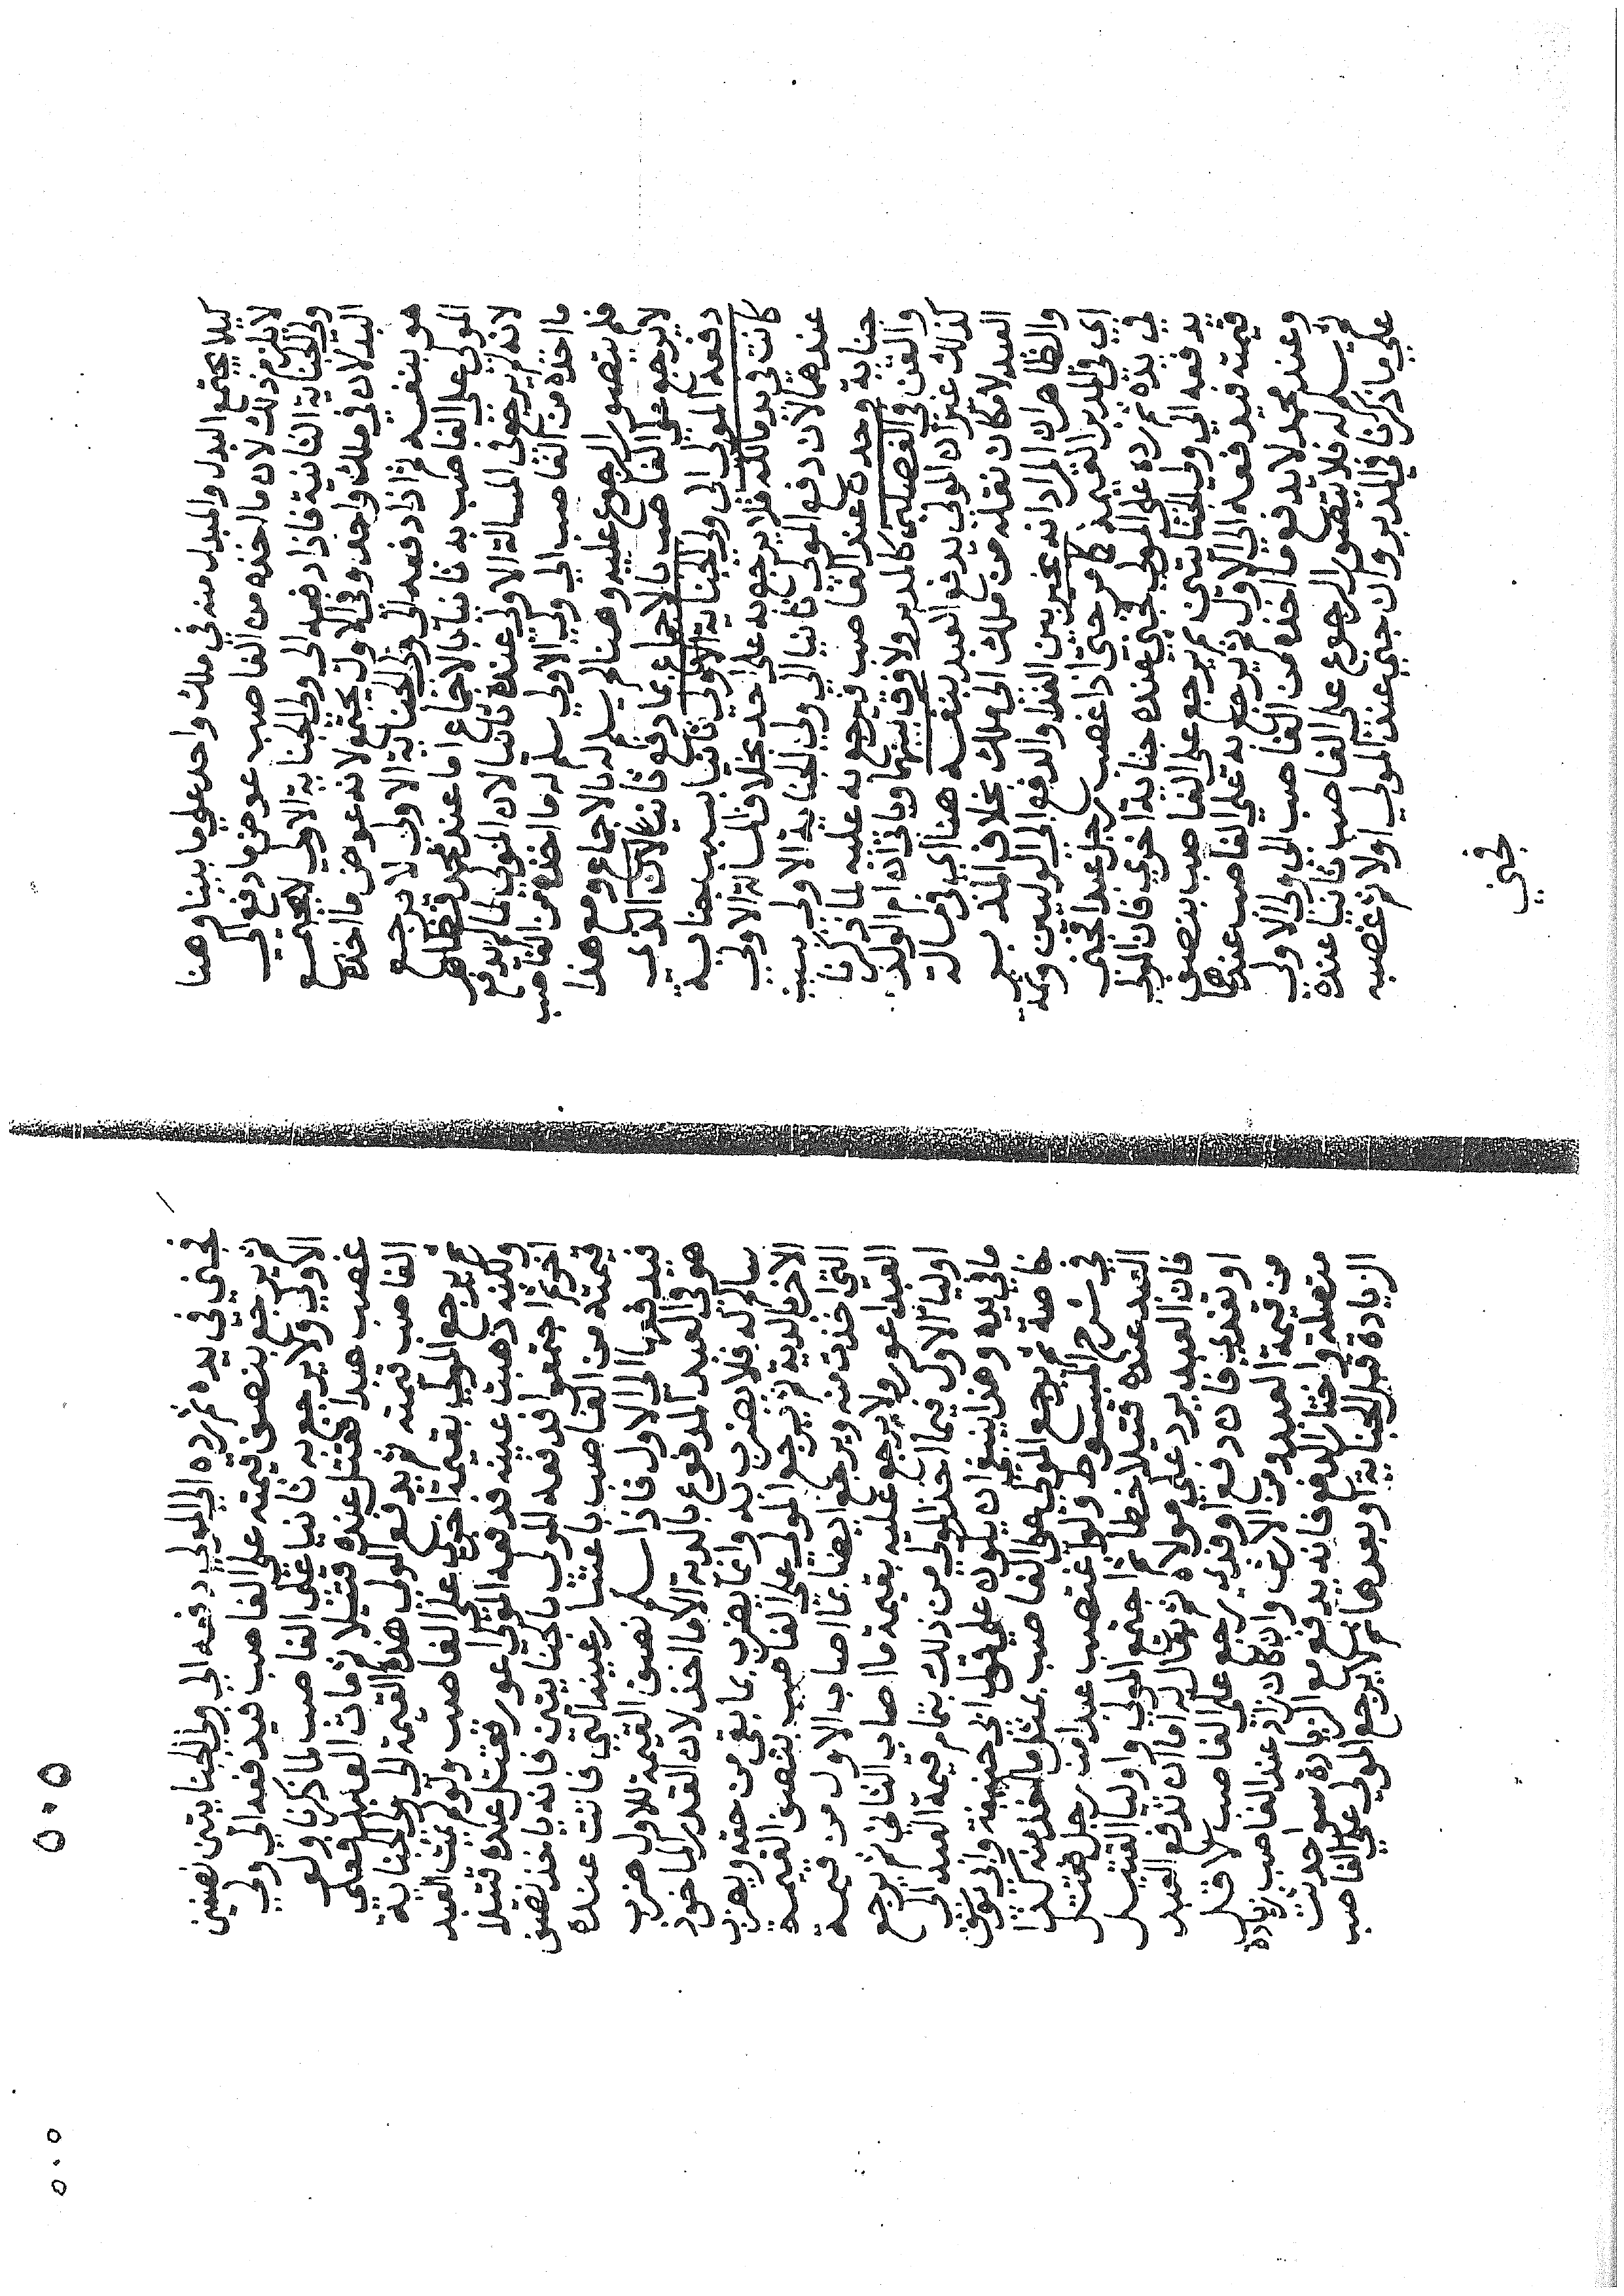 كيلا يجتمع البدل والمبدل منه في ملك واحد علي ما بينا وهنا
لا يلزم ذلك لان ما اخذه من الغاصب عوض ما دفع الي
ولي الجناية الثانية فاذا دفعه الي ولي الجناية الاولي لا يجتمع
البدلان في ملك واحد وفي الاول يجتمع لانه عوض ما اخذه
هو بنفسه ثم اذا دفعه الي ولي الجناية الاولي لا يرجع
المولي علي الغاصب به ثانيا بالاجماع اما عند محمد فظاهر
لانه لم يرجع في المسالة الاولي عنده ثانيا لان المولي لما لم يدفع
ما اخذه من الغاصب الي ولي الاولي سلم له ما اخذه من الغاصب
فلم يتصور الرجوع عليه وهنا لم يسلم له بالاجماع ومع هذا
لا يرجع علي الغاصب بالاجماع بما دفع ثانيا لان الذي
دفعه المولي الي ولي الجناية الاولي ثانيا بسبب جناية
كانت في يد مالكه فلا يرجع به علي احد بخلاف المسالة الاولي
عندهما لان دفع المولي ثانيا الي ولي الجناية الاولي بسبب
جناية وجدت عند الغاصب فيرجع به عليه لما ذكرنا
والقن في الفصلين كالمدبر ولا فرق بينهما وياتي ان ام الولد
كذلك غير ان المولي يدفع العبد بنفسه هنا اي في مسالة
العبد لامكان نقله من ملك الي ملك بخلاف المدبر
والظاهر ان المراد انه يخير بين الفدا والدفع الي الوليين وثمة
اي في المدبر القيمة كما مر حتي اذا غصب رجل عبدا فجني
في يده ثم رده علي المولي فجني عنده جناية اخري فان المولي
يدفعه الي ولي الجنايتين ثم يرجع علي الغاصب بنصف
قيمته فيدفعه الي الاول ثم يرجع به علي الغاصب عندهما
وعند محمد لا يدفع ما اخذه من الغاصب الي ولي الاولي
بل يسلم له فلا يتصور الرجوع علي الغاصب ثانيا عنده
علي ما ذكرنا في المدبر وان جني عند المولي اولا ثم غصبه
فجني
فجني في يده ثم رده الي المولي دفعه الي ولي الجنايتين نصفين
ثم يرجع بنصف قيمته علي الغاصب فيدفعه الي ولي
الاولي ولا يرجع به ثانيا علي الغاصب لما ذكرنا ولو
غصب عبدا فقتل عنده قتيلا ثم مات العبد فعلي
الغاصب قيمته ثم يدفع المولي هذه القيمة الي ولي الجناية
ثم يرجع المولي بقيمة اخري علي الغاصب ولو لم يمت العبد
ولكنه ذهبت عينه فدفعه المولي اعور فقتل عنده قتيلا
اخر ثم اجتمعوا فدفعه المولي بالجنايتين فانه ياخذ نصف
قيمته من الغاصب باعتبار عينه التي فاتت عنده
فيدفعها الي الاول فاذا سلم نصف القيمة للاول ضرب
هو في العبد المدفوع بالدية الا ما اخذ لان القدر الماخوذ
سالم له فلا يضرب به وانما يضرب بما بقي من حقه ويضرب
الاخر بالدية ثم يرجع المولي علي الغاصب بنصف القيمة
التي اخذت منه ويرجع ايضا بما اصاب الاول من قيمة
العبد اعور ولا يرجع عليه بقيمة ما اصاب الثاني ثم يرجع
اوليا الاول فيما اخذ المولي من ذلك بتمام قيمة العبد الي
ما في يده وهذا ينبغي ان يكون علي قول ابي حنيفة وابي يوسف
خاصة ثم يرجع المولي علي الغاصب بمثل ما اخذ منه كذا
في شرح المبسوط ولو اغتصب عبدا من رجل فقتل
العبد عنده قتيلا خطا ثم اجتمع المولي واوليا القتيل
فان العبد يرد علي مولاه ثم يقال له اما ان تدفع العبد
او تفدي فان دفع او فدي يرجع علي الغاصب بالاقل
من قيمة العبد ومن الارش وان كان زاد عند الغاصب زيادة
متصلة واختار الدفع فانه يدفع مع الزيادة سوا حدثت
الزيادة قبل الجناية او بعدها ثم لا يرجع المولي علي الغاصب
٥٠٥
٥٠٠